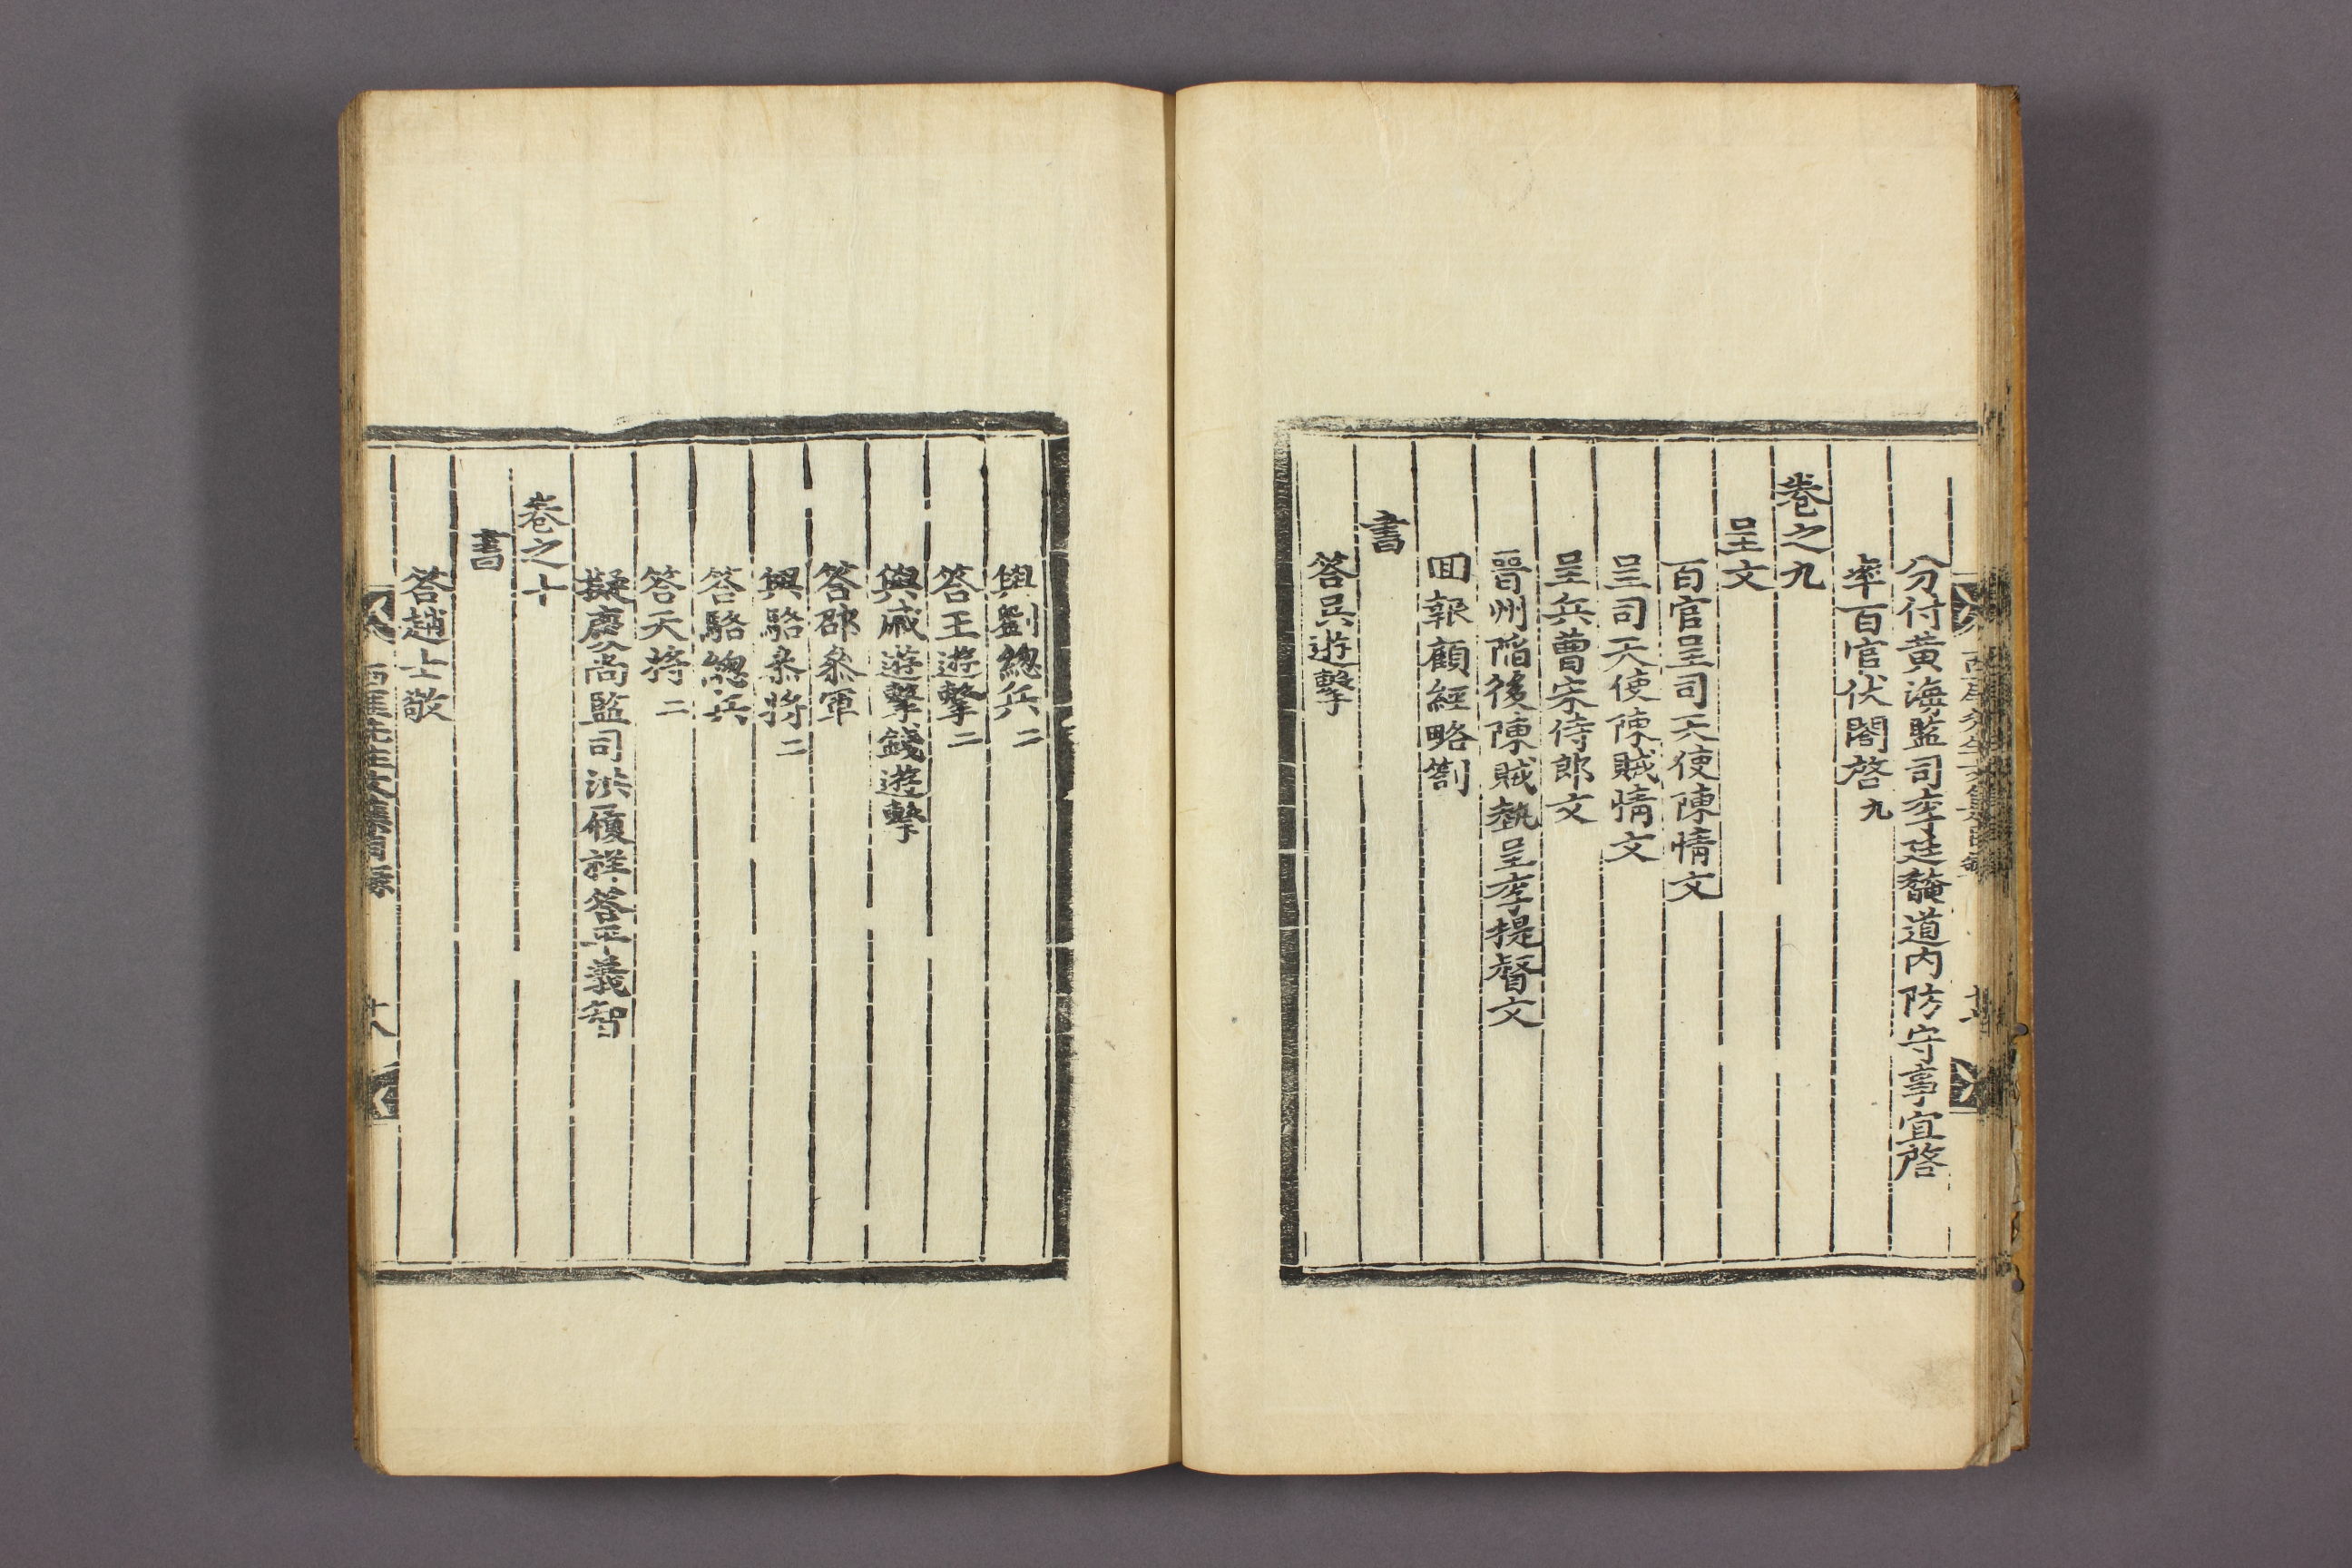 分付黃海監司李廷馣道內防守事宜啓
率百官伏閤啓九
卷之九
呈文
百官呈司天使陳情文
呈司天使陳賊情文
呈兵曹宋侍郎文
晉州陷後陳賊勢呈李提督文
回報顧經略劄
書
答吳遊擊
與劉總兵二
答王遊擊二
與戚遊擊錢遊擊
答邵叅軍
與駱叅將二
答駱總兵
答天將二
擬慶尚監司洪履祥答平義智
卷之十
書
答趙士敬
西厓先生文集目錄
十八